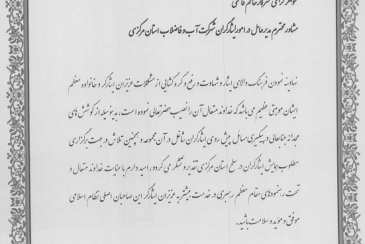 مشاور محترم مدیرعامل در امور ایثارگران شرکت آب و فاضلاب استان مرکزی
نهادینه نمودن فرهنگ والای ایثار و شهادت و رفع و گره گشایی از مشکلات عزیزان ایثارگر و خانواده معظم
ایشان موهبتی عظیم می باشد که خداوند متعال آن را نصیب حضرتعالی نموده است، بدینوسیله از کوشش های
مجدانه جنابعالی در پیگیری مسائل پیش روی ایثارگران شاغل در آن مجموعه و همچنین تلاش در جهت برگزاری
مطلوب همایش ایثارگران در سطح استان مرکزی تقدیر و تشکر می گردد، امید دارم با عنایات خداوند متعال و
تحت رهنمودهای مقام معظم رهبری در خدمت بیشتر به عزیزان ایثارگر این صاحبان اصلی نظام اسلامی
موفق و موید و سلامت باشید.